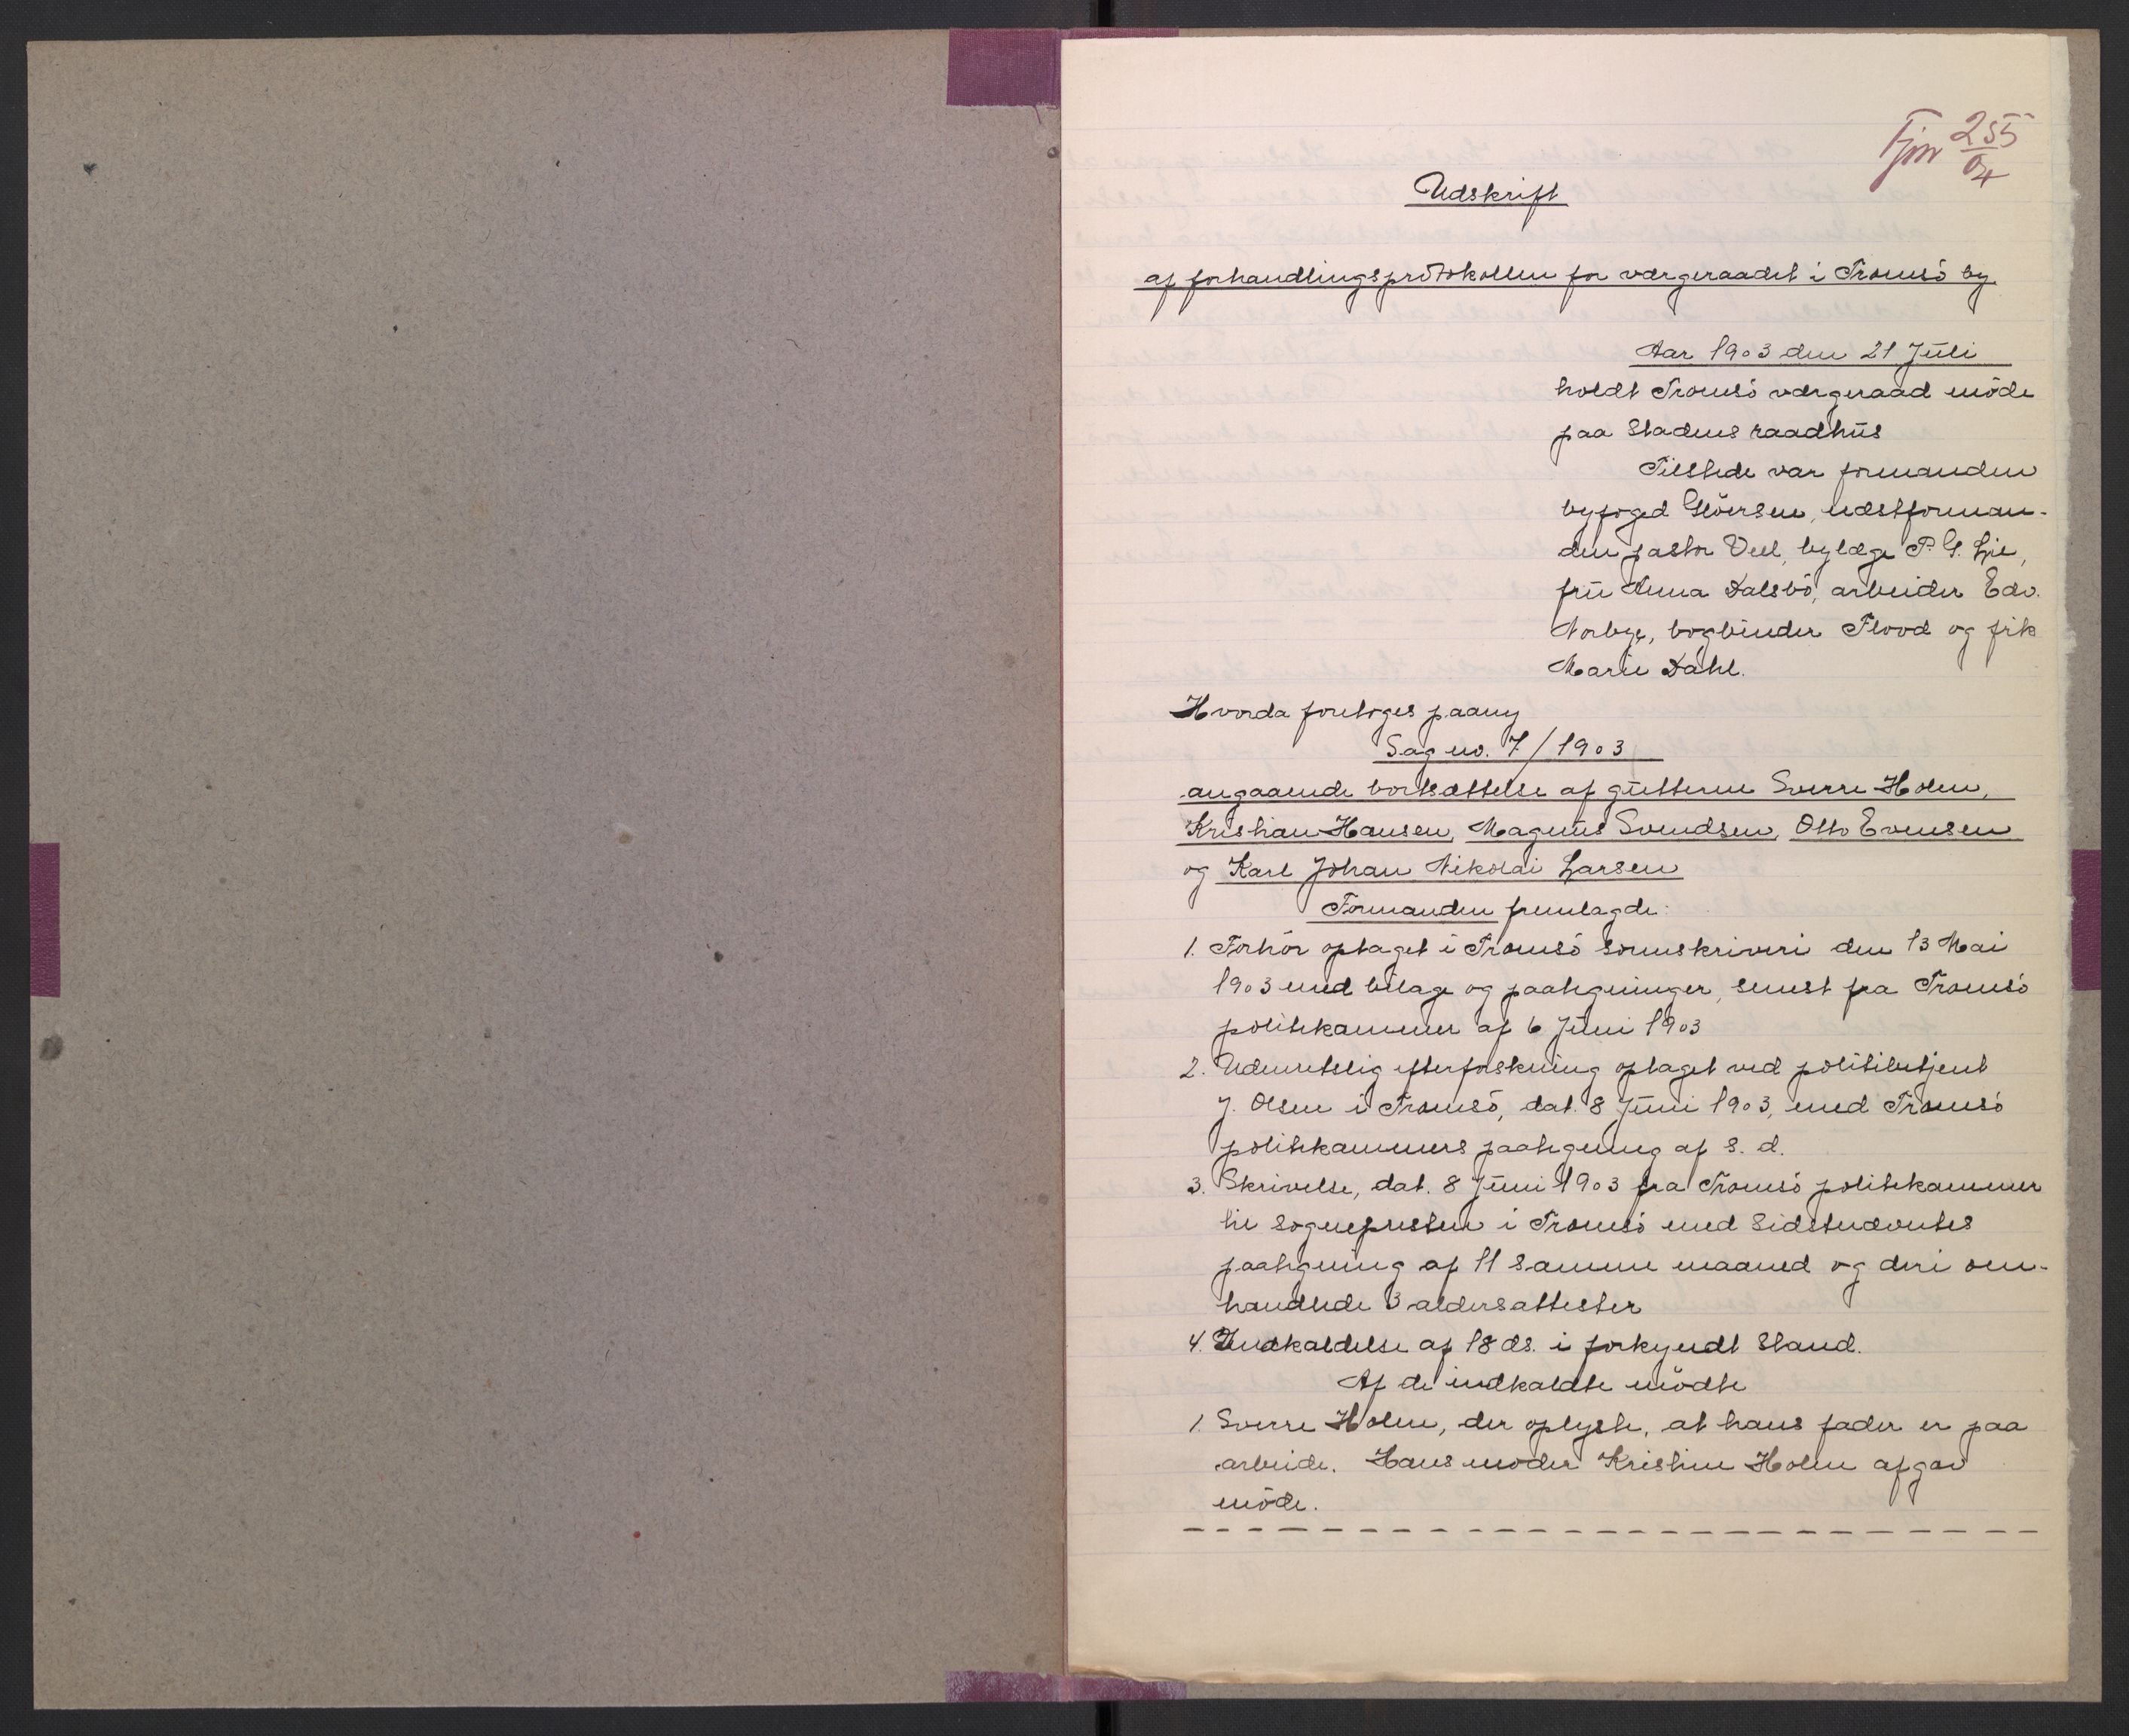 255
04
Udskrift
af forhandlingsprotokollen for værgeraadet i Tromsö by.
Aar 1903 den 21 Juli
holdt Tromsö værgeraad möde
paa Stadens raadhus
Tilstede var formanden
byfoged Glöersen, næstforman-
den pastor Veel, bylæge P. G. Lie,
fru Anna Dalsbö, arbeider Edv.
Norbye, bogbinder Flood og frk
Marie Dahl.
Hvorda foretoges paany
Sag no. 7/1903
angaaende bortsættelse af gutterne Sverre Holm,
Kristian Hansen, Magnus Svendsen, Otto Evensen
og Karl Johan Nikolai Larsen
Formanden fremlagde:
1. Forhör optaget i Tromsö sorenskriveri den 13 Mai
1903 med bilage og paategninger, senest fra Tromsö
politikammer af 6 Juni 1903
2. Udenretslig efterforskning optaget ved politibetjent
J. Olsen i Tromsö, dat. 8 Juni 1903, med Tromsö
politikammers paategning af s. d.
3. Skrivelse, dat. 8 Juni 1903 fra Tromsö politikammer
til sognepresten i Tromsö med sidstnævntes
paategning af 11 samme maaned og deri om-
handlede 3 aldersattester
4. Indkaldelse af 18 ds. i forkyndt stand.
Af de indkaldte mödte
1. Sverre Holm, der oplyste, at hans fader er paa
arbeide. Hans moder Kristine Holm afgav
möde.